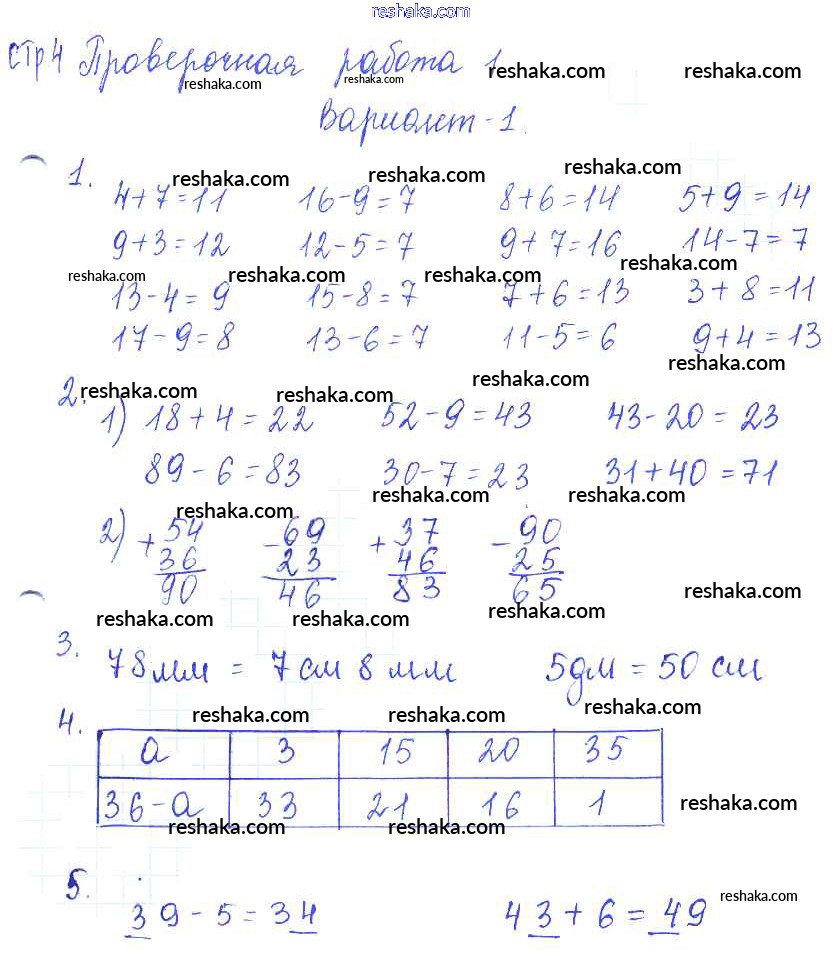 reshaka.com
стр 4 Проверочная работа 1
reshaka.com reshaka.com reshaka.com reshaka.com
Вариант-1.
1. reshaka.com reshaka.com reshaka.com
4+7=11 16-9=7 8+6=14 5+9=14
9+3=12 12-5=7 9+7=16 14-7=7
reshaka.com reshaka.com reshaka.com reshaka.com
13-4=9 15-8=7 7+6=13 3+8=11
17-9=8 13-6=7 11-5=6 9+4=13
2. reshaka.com reshaka.com reshaka.com reshaka.com
1) 18+4=22 52-9=43 43-20=23
89-6=83 30-7=23 31+40=71
reshaka.com reshaka.com reshaka.com
2) +54 -69 +37 -90
36 23 46 25
90 46 83 65
reshaka.com reshaka.com reshaka.com reshaka.com
3. 78 мм = 7 см 8 мм 5 дм = 50 см
4. reshaka.com reshaka.com reshaka.com
а 3 15 20 35
36-а 33 21 16 1
reshaka.com reshaka.com reshaka.com
5. reshaka.com
39-5=34 43+6=49